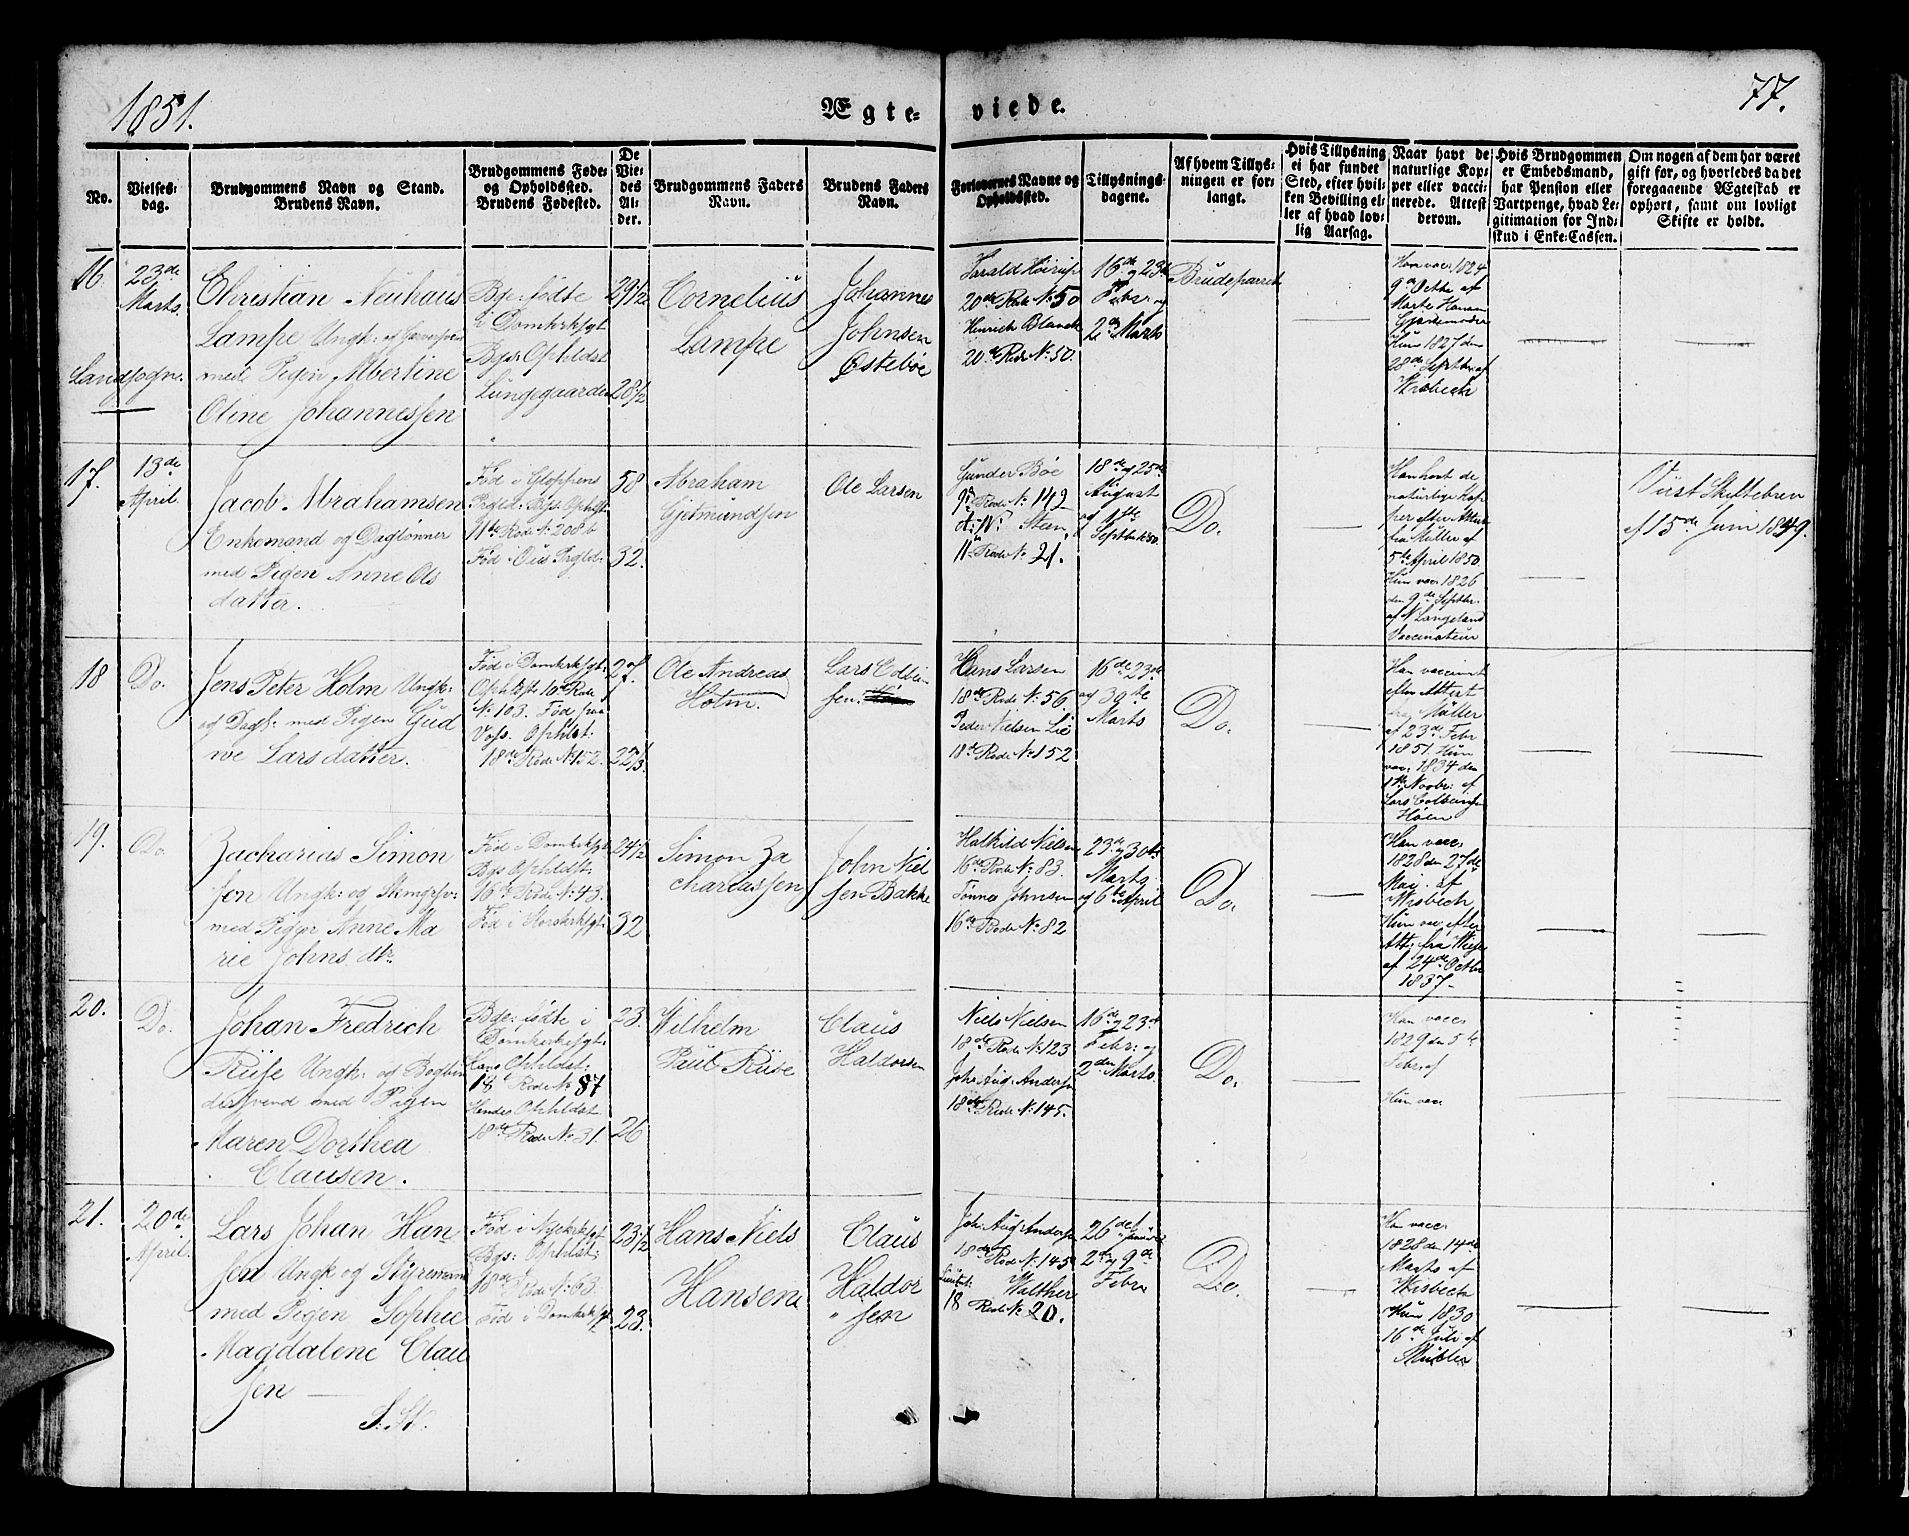 1851.
Ægte-
viede.
77.
No.
Vielses-
dag.
Brudgommens Navn og Stand.
Brudens Navn.
Brudgommens Føde-
og Opholdsted.
Brudens Fødested.
De
Vie-
des
Al-
der.
Brudgommens Faders
Navn.
Brudens Faders
Navn.
Forlovernes Navne og
Opholdsted.
Tillysnings-
dagene.
Af hvem Tillys-
ningen er for-
langt.
Hvis Tillysning
ei har fundet
Sted, efter hvil-
ken Bevilling el-
ler af hvad lov-
lig Aarsag.
Naar havt de
naturlige Kop-
per eller vacci-
nerede. Attest
derom.
Hvis Brudgommen
er Embedsmand,
har Pension eller
Vartpenge, hvad Le-
gitimation for Ind-
skud i Enke-Cassen.
Om nogen af dem har været
gift før, og hvorledes da det
foregaaende Ægteskab er
ophørt, samt om lovligt
Skifte er holdt.
16.
23de
Marts.
Landsogn.
Christian Neuhaus
Lampe Ungk:
med Pigen Albertine
Oline Johannessen
Bgs: fødte
i Domkrksgt
Bgs: Ophldst
Lungegaarden
29 1/2
28 1/2
Cornelius
Lampe
Johannes
Johnsen
Østebøe
Harald Høirup
20de Rode No 50
Hinrich Blanck
20de Rode No 50.
16de og 23de
Febr: og
2den Marts
Brudeparret
Han vacc 1824
9de Octbr af
Marte Hansen
Gjordemoder
Hun 1827 den
28de Septbr af
Wisbech
17.
13de
April.
Jacob Abrahamsen
Enkemand og Daglønner
med Pigen Anne Ols
datter.
Fød i Gloppens
Prgld: Bgs: Ophldst
11te Rode No 208 b
Fød i Ous Prgld:
58
32.
Abraham
Gjetmundsen
Ole Larsen
Gunder Bøe
9de Rode No 149
Steen,
11te Rode No 21.
18de og 25de
August
og 1ste
Septbr 1850.
Do.
Han havt de
naturlige Kop
per efter Attest
fra Müller af
5te April 1850.
Hun vacc 1826
den 9de Septbr.
af N Langeland
Vaccinateur
Viist Skiftebrev
af 15de Juni 1849.
18
Do.
Jens Peter Holm Ungk:
og Dagl: med Pigen Gud
ve Larsdatter.
Fød i Domkrksgt:
Ophldst: 10de Rode
No 103. Fød paa
Voss. Ophldst:
18de Rode No 152.
27.
22 1/3.
Ole Andreas
Holm.
Lars Colbein
sen.
Hans Larsen
18de Rode No 56.
Peder Nielsen Lie
18de Rode No 152
16de 23de
og 30te
Marts
Do.
Han vaccineret
efter Attest
fra Müller
af 23de Febr
1851. Hun
vacc 1834 den
1ste Novbr: af
Lars Colbeinsen
Høien
19.
Do.
Zacharias Simon
sen Ungk: og
med Pigen Anne Ma
rie Johns dtr.
Fød i Domkrksgt
Bgs Ophldst:
16de Rode No 43.
Fød i Korskrksgt:
24 1/2
32
Simon Za
chariassen
John Niel
sen Bakke
Halkild Nielsen
16de Rode No 83.
Tønnes Johnsen
16de Rode No 82
23de og 30te
Marts
og 6te April
Do.
Han vacc:
1828 den 27de
Mai. af
Wisbech
Hun vac efter
Att: fra
af 24de Octbr
1837.
20.
Do.
Johan Fredrich
Rüse Ungk: og Bogbin
dersvend med Pigen
Maren Dorthea
Clausen.
Bgs: fødte i
Domkerksgt:
Hans Ophldst:
18de Rode No 87
Hendes Ophldst
18de Rode No 31.
23.
26
Wilhelm
Paul Rüse
Claus
Haldorsen
Niels Nielsen
18de Rode No 123
Joh: Aug: Andersen
18de Rode No 145.
16de og 23de
Febr: og
2den Marts
Do.
Han vacc
1829 den 5te
Febr af
Hun vacc
21.
20de
April.
Lars Johan Han
sen Ungk og Styrmand
med Pigen Sophie
Magdalene Clau
sen
S. St.
Fød i Nykrksgt
Bgs: Ophldst:
18de Rode No 63.
Fød i Domkrksgt
23 1/2
23.
Hans Niels
Hansen
Claus
Haldor
sen
Joh: Aug: Andersen
18de Rode No 145
Walther
18 Rode No 20.
26de
2den og 9de
Febr
Do.
Han vacc
1828 den 14de
Marts af
Wisbech
Hun 1830
16de Juli af